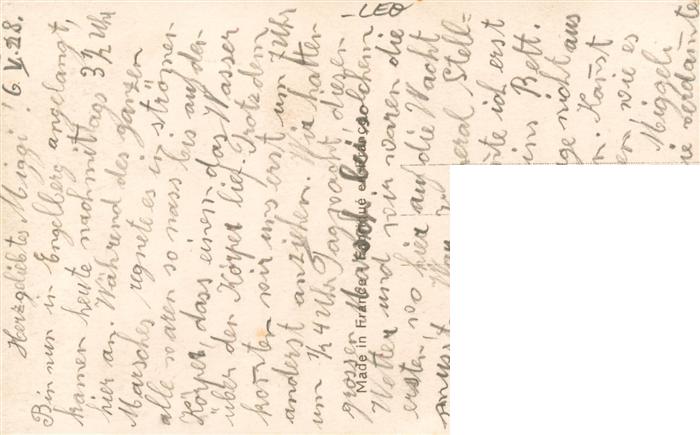 6. V. 28.
Herzgeliebtes Miggi!
Bin nun in Engelberg angelangt,
kamen heute nachmittags 3½ Uhr
hier an. Während des ganzen
Marsches regnete es in strömen
alle waren so nass bis auf den
Körper, dass einem das Wasser
über den Körper lief. Trotzdem
konten wir uns erst um 7 Uhr
anderst anziehen. Wir hatten
um ½ 4 Uhr Tagwacht diesen
grossen Marsch bei solchem
Wetter und wir waren die
ersten wo hier auf die Wacht
musst. War
eral Stell-
te ich erst
ins Bett.
ge nicht aus
n. Kanst
en wie es
Miggeli
ie
LEO
Made in France Fabriqué en France